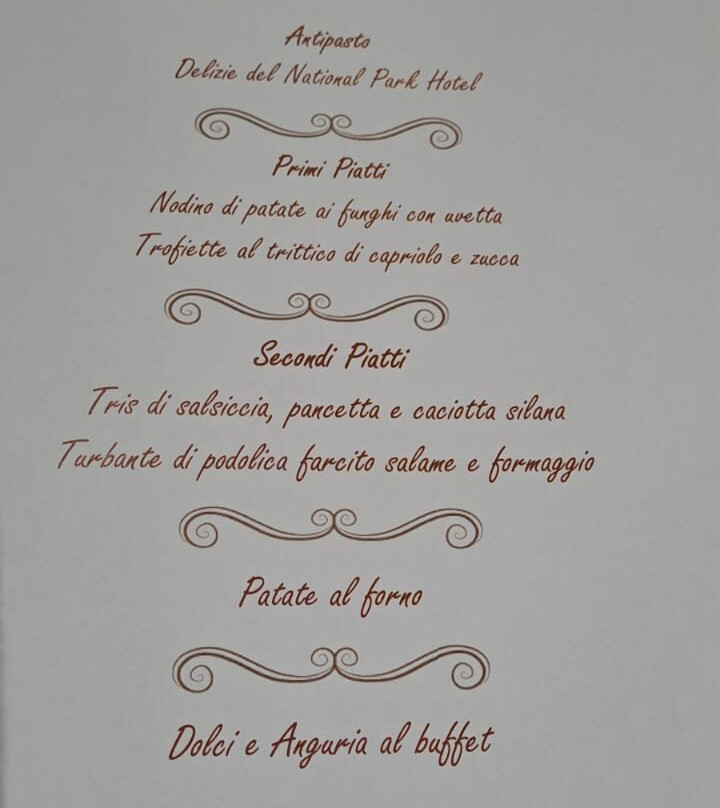 Antipasto
Delizie del National Park Hotel
Primi Piatti
Nodino di patate ai funghi con uvetta
Trofiette al trittico di capriolo e zucca
Secondi Piatti
Tris di salsiccia, pancetta e caciotta silana
Turbante di podolica farcito salame e formaggio
Patate al forno
Dolci e Anguria al buffet